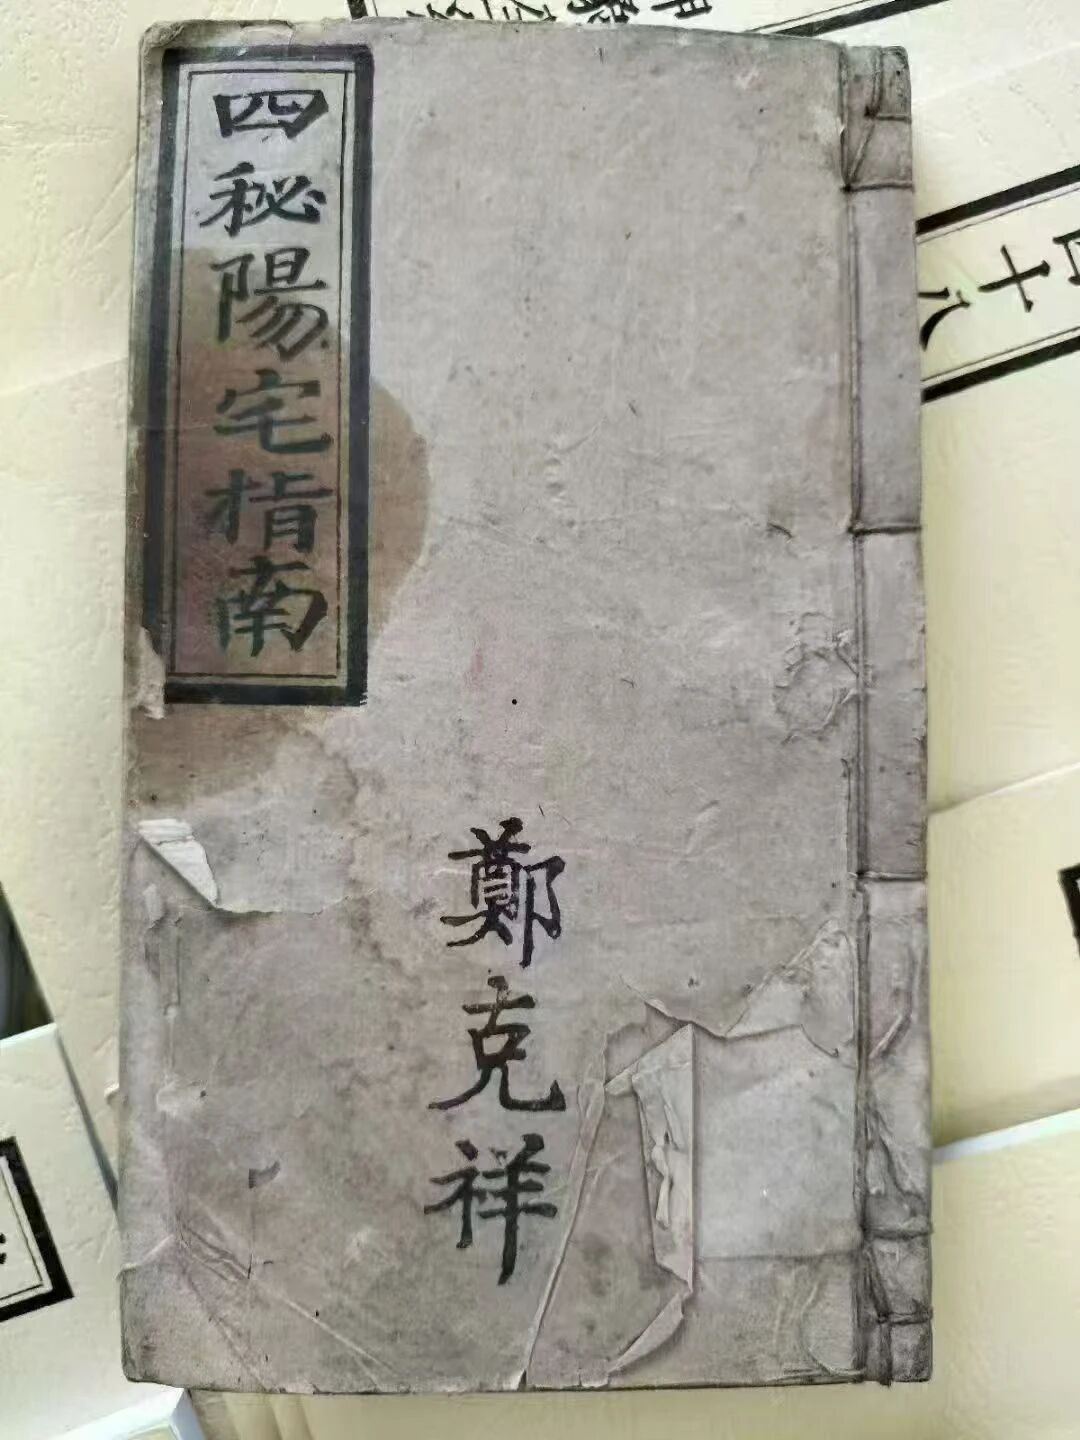 四秘陽宅指南
鄭克祥
四十八